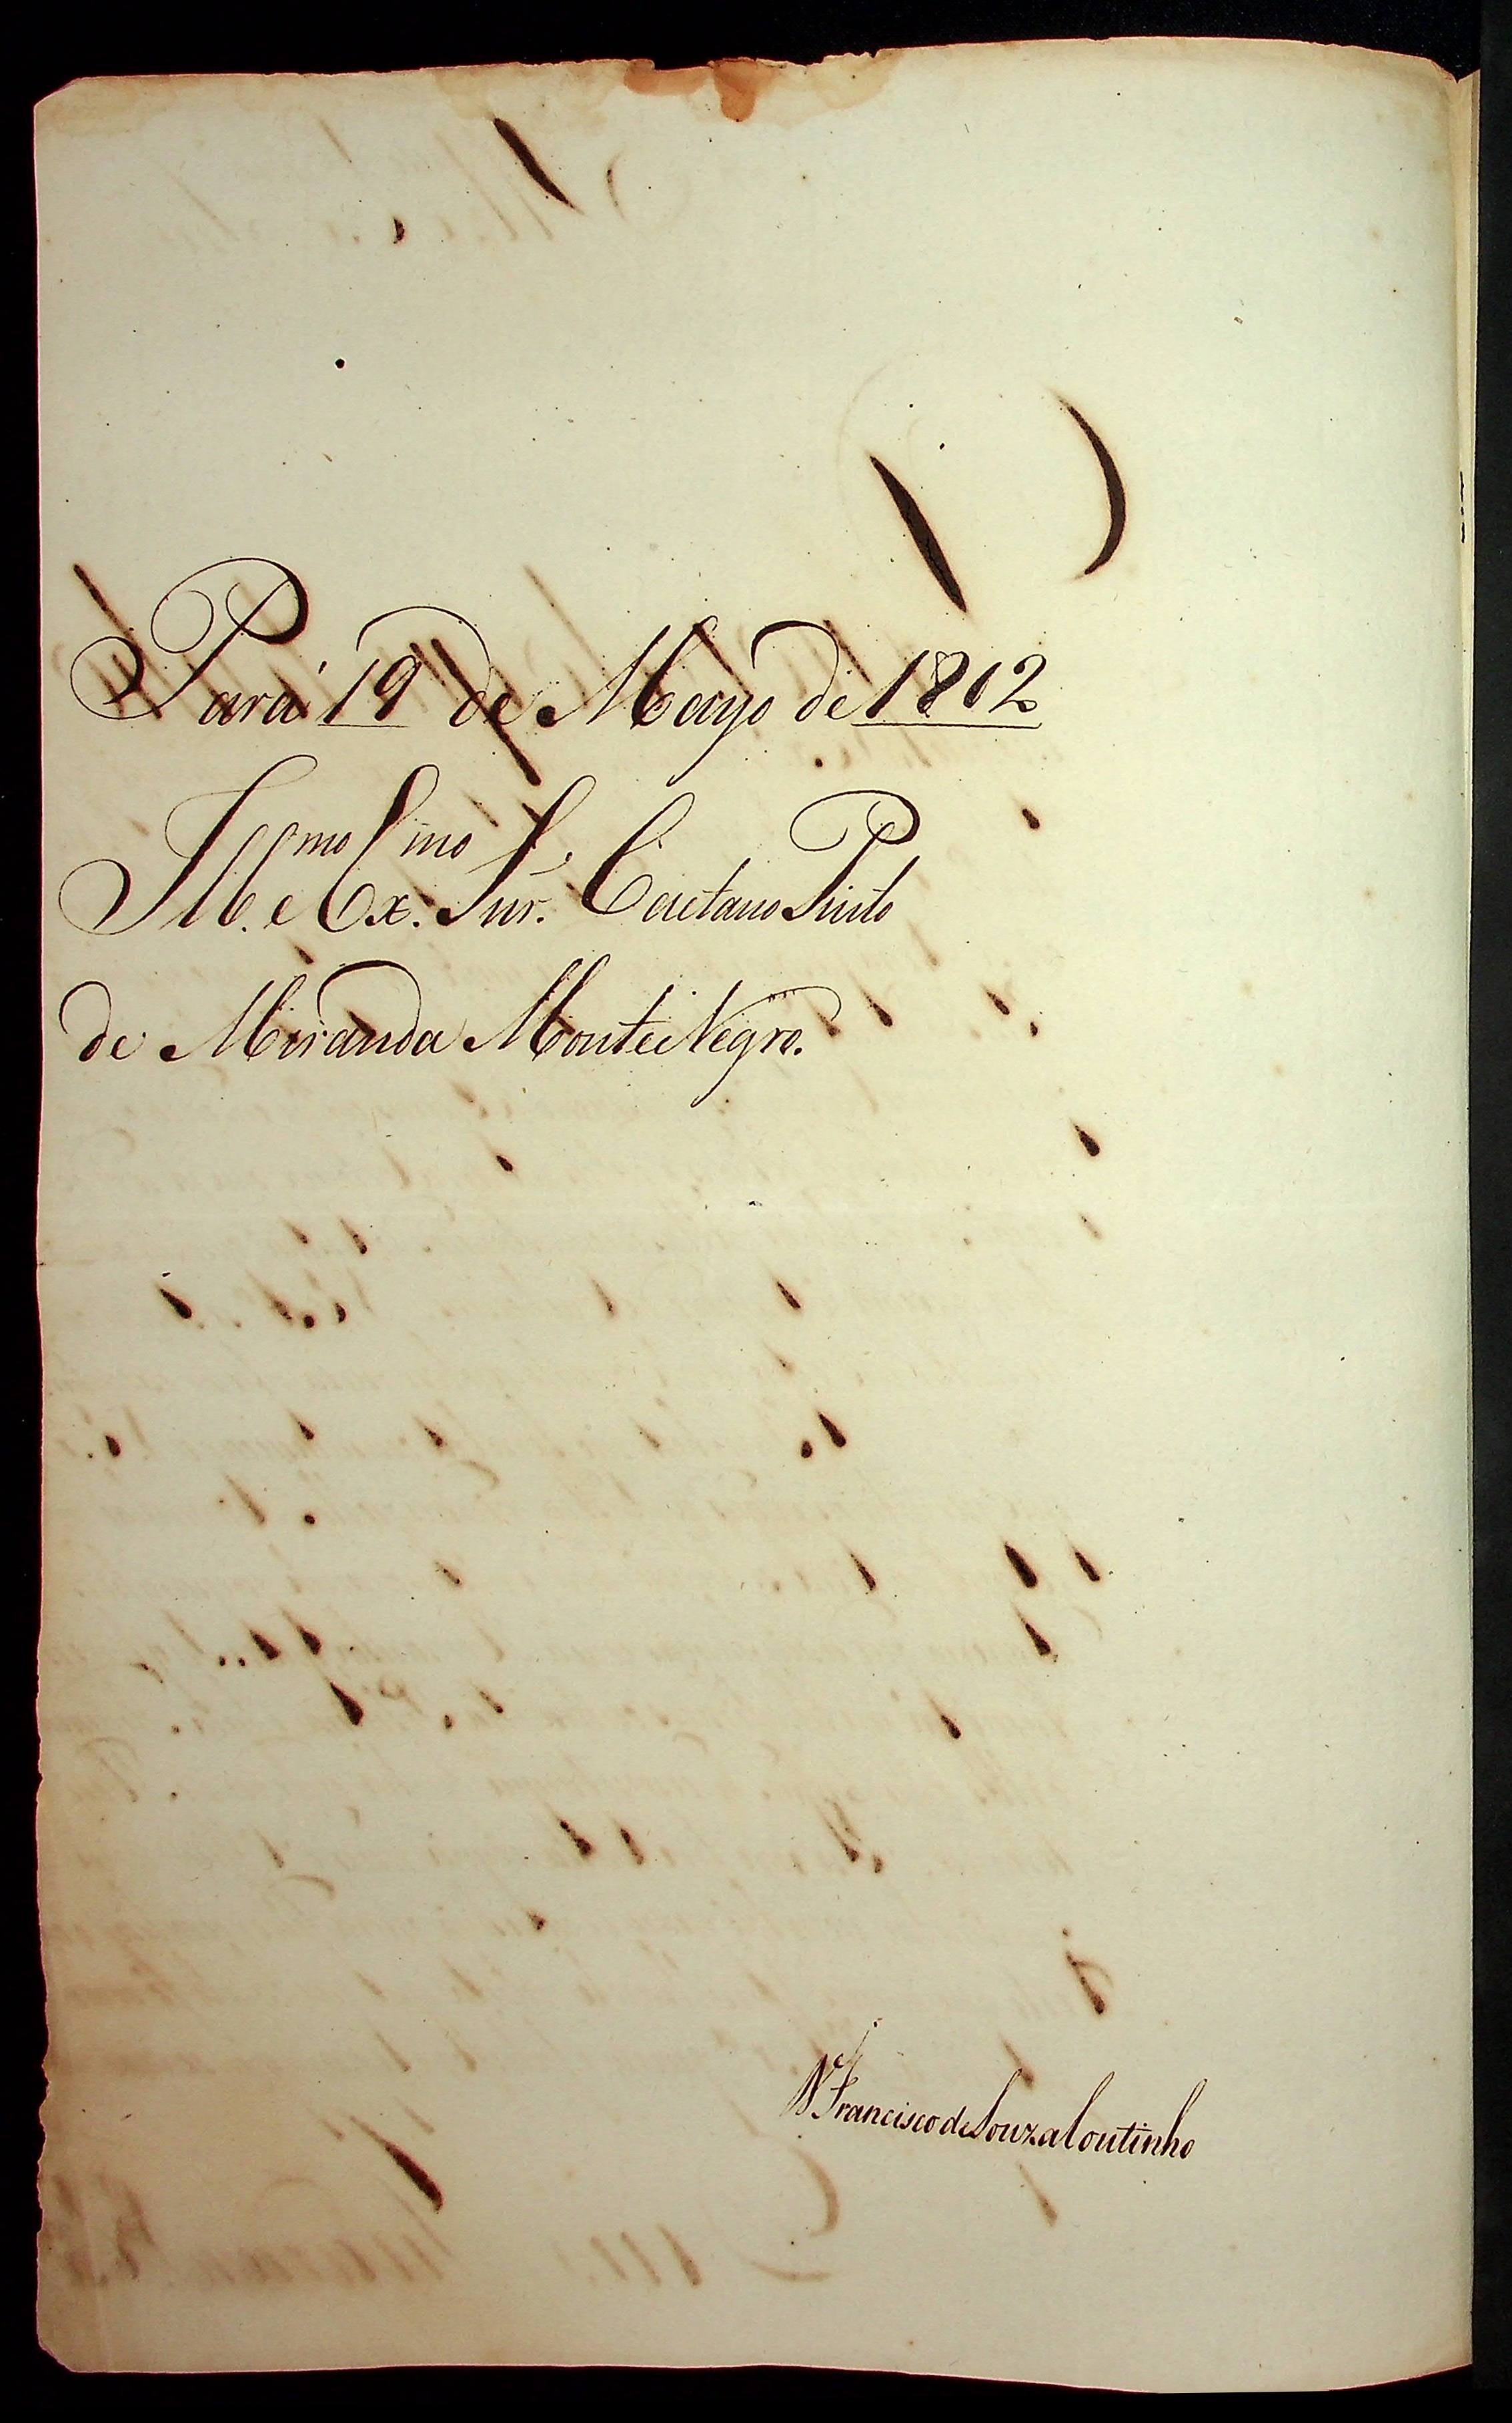 Pará 19 de Mayo de 1802
Ill.mo e Ex.mo Snr. Caetano Pinto
de Miranda Monte Negro.
D. Francisco de Souza Coutinho